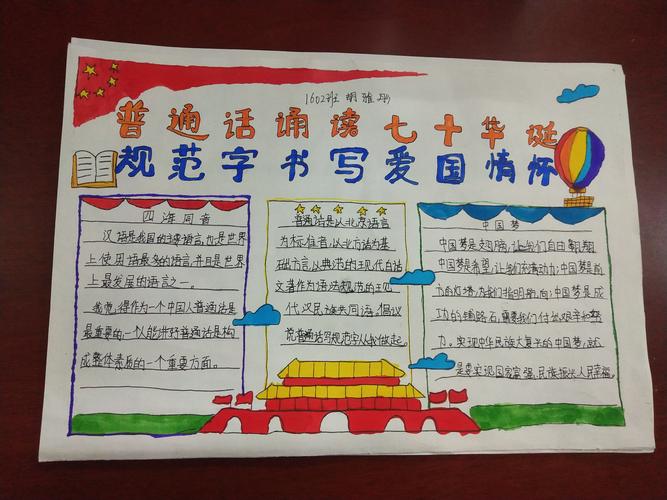 1602班 胡雅
普通话诵读七十华诞
规范字书写爱国情怀
四海同音
汉语是我国的主要语言，也是世界
上使用语最多的语言，并且是世界
上最发展的语言之一。
我觉得作为一个中国人普通话是
最重要的一个能讲好普通话是构
成整体素质的一个重要方面。
普通话是以北京语言
为标准音，以北方话为基
础方言，以典范的现代白话
文著作为语法规范的
代汉民族共同语。倡议
说普通话写规范字从我做起。
中国梦
中国梦是翅膀，让我们自由翱翔
中国梦是希望，让我们充满动力；中国梦是前
方的灯塔，为我们指明航向；中国梦是成
功的铺路石，需要我们付出艰辛和努
力。实现中华民族大复兴的中国梦，就
是要实现国家富强、民族振兴、人民幸福。